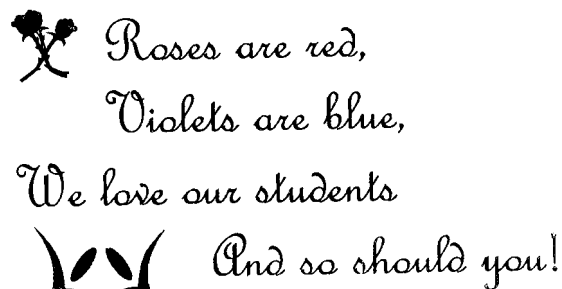 Roses are red,
Violets are blue,
We love our students
And so should you!